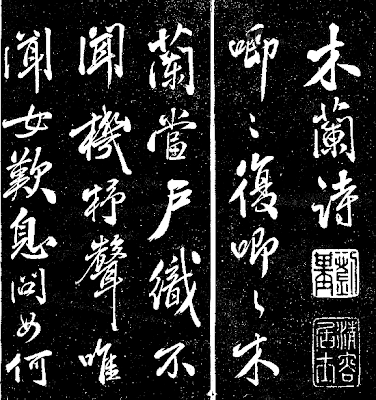 木蘭詩
唧〻復唧〻木
蘭當戶織不
聞機杼聲唯
聞女歎息問女何